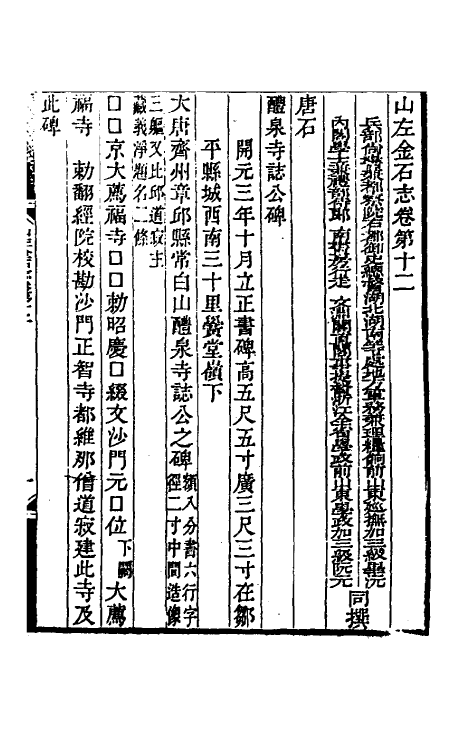 山左金石志卷第十二
兵部尚書兼都察院右都御史總督湖北湖南等處地方軍務兼理糧餉前山東巡撫加三級畢沅
內閣學士兼禮部侍郎南書房行走文淵閣直閣事提督浙江全省學政前山東學政加三級阮元
同撰
唐石
醴泉寺誌公碑
開元三年十月立正書碑高五尺五寸廣三尺三寸在鄒
平縣城西南三十里黌堂嶺下
大唐齊州章邱縣常白山醴泉寺誌公之碑額八分書六行字徑二寸中間造像
三軀又比邱道寂主
藏義淨題名二條
□□京大薦福寺□□勅昭慶□綴文沙門元□位下闕大薦
福寺 勅翻經院校勘沙門正智寺都維那僧道寂建此寺及
此碑